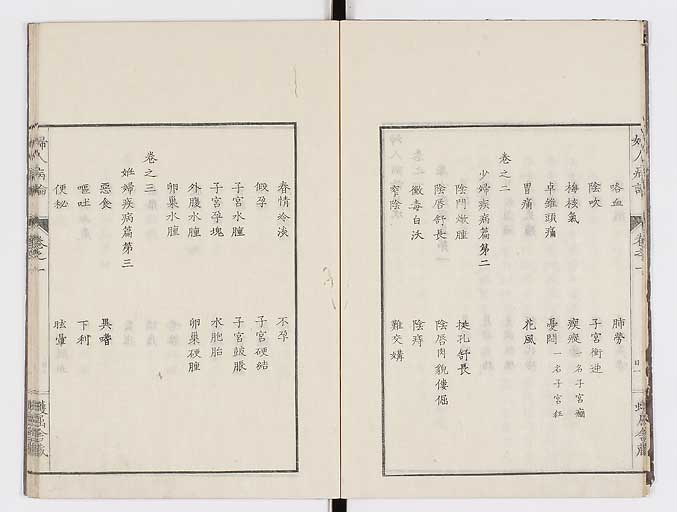 咯血 肺勞
陰吹 子宮衝逆
梅核氣 瘈瘲一名子宮癎
卓錐頭痛 憂鬧一名子宮狂
胃痛 花風
卷之二
少婦疾病篇第二
陰門焮腫 挺孔舒長
陰唇舒長 陰唇肉貌僂倔
黴毒白沃 陰痔
窄陰 難交媾
春情冷淡 不孕
假孕 子宮硬結
子宮水腫 子宮皷脹
子宮孕塊 水胞胎
外腹水腫 卵巢硬腫
卵巢水腫
卷之三
姙婦疾病篇第三
惡食 異嗜
嘔吐 下利
便秘 眩暈
婦人病論